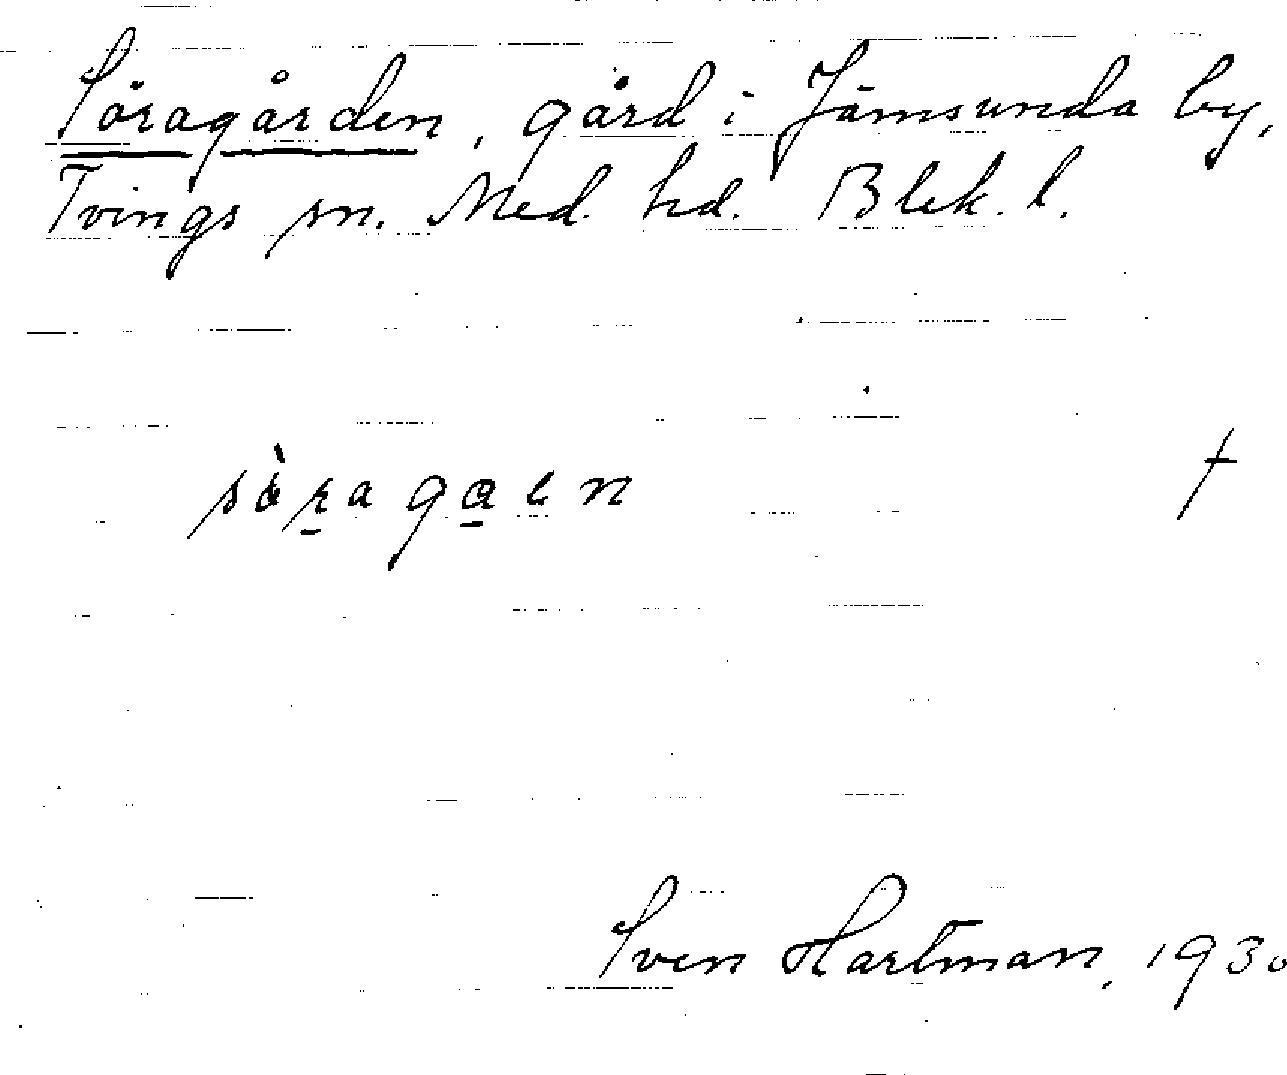 Söragården, gård i Jämsunda by,
Tvings sn. Med. hd. Blek. l.
†
Sven Hartman, 1930